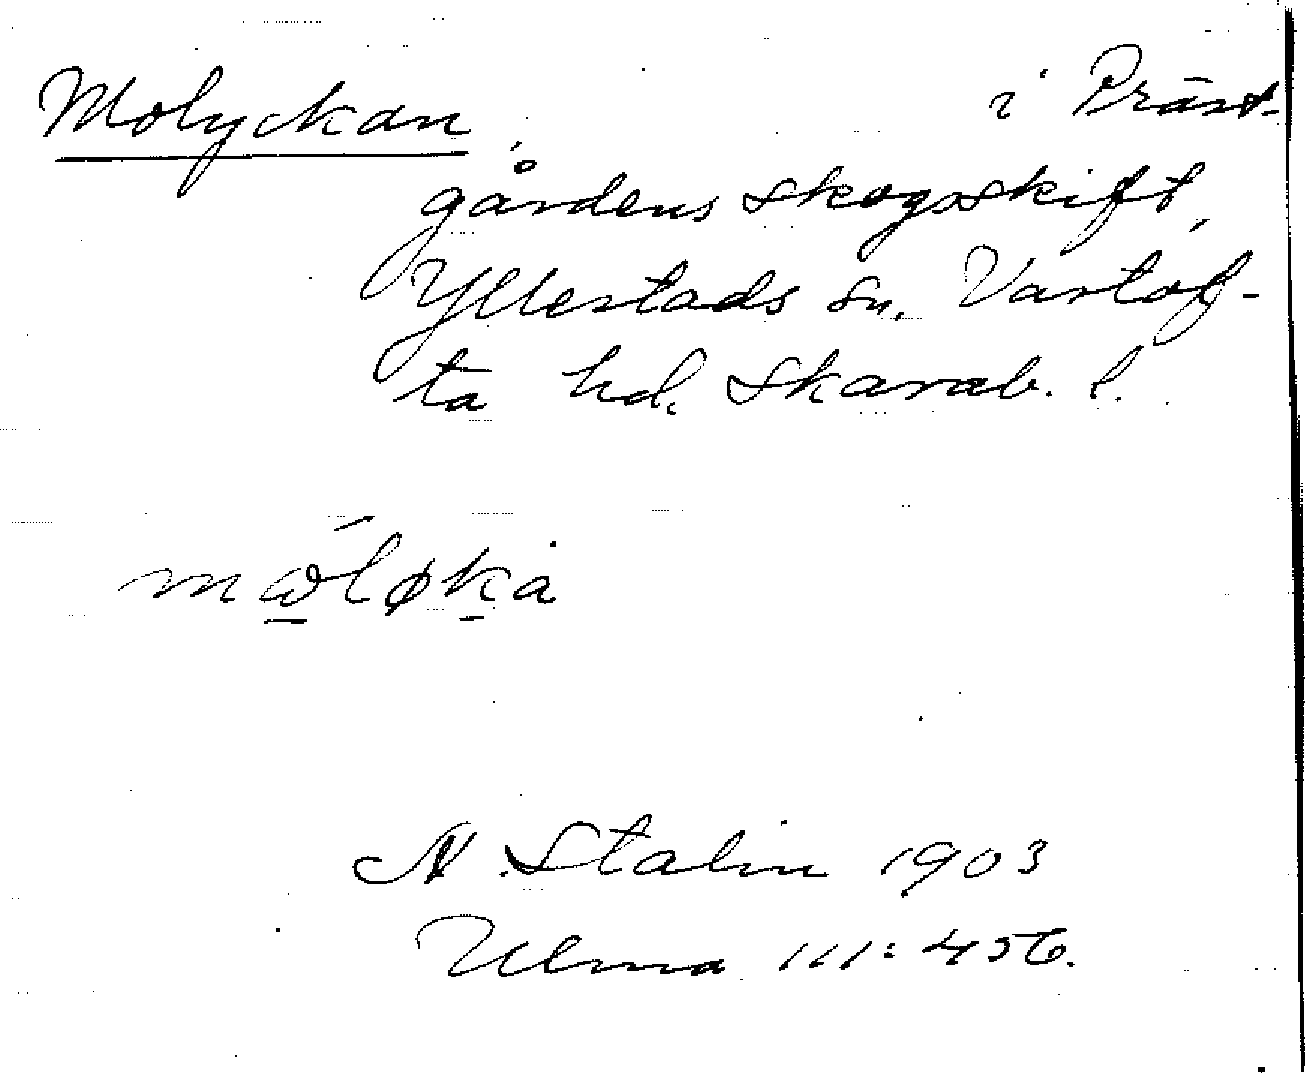 Molyckan i Präst-
gårdens skogsskift,
Yllestads sn, Vartof-
ta hd. Skarab. l.
mωløka
N. Stalin 1903
Ulma 111:456.